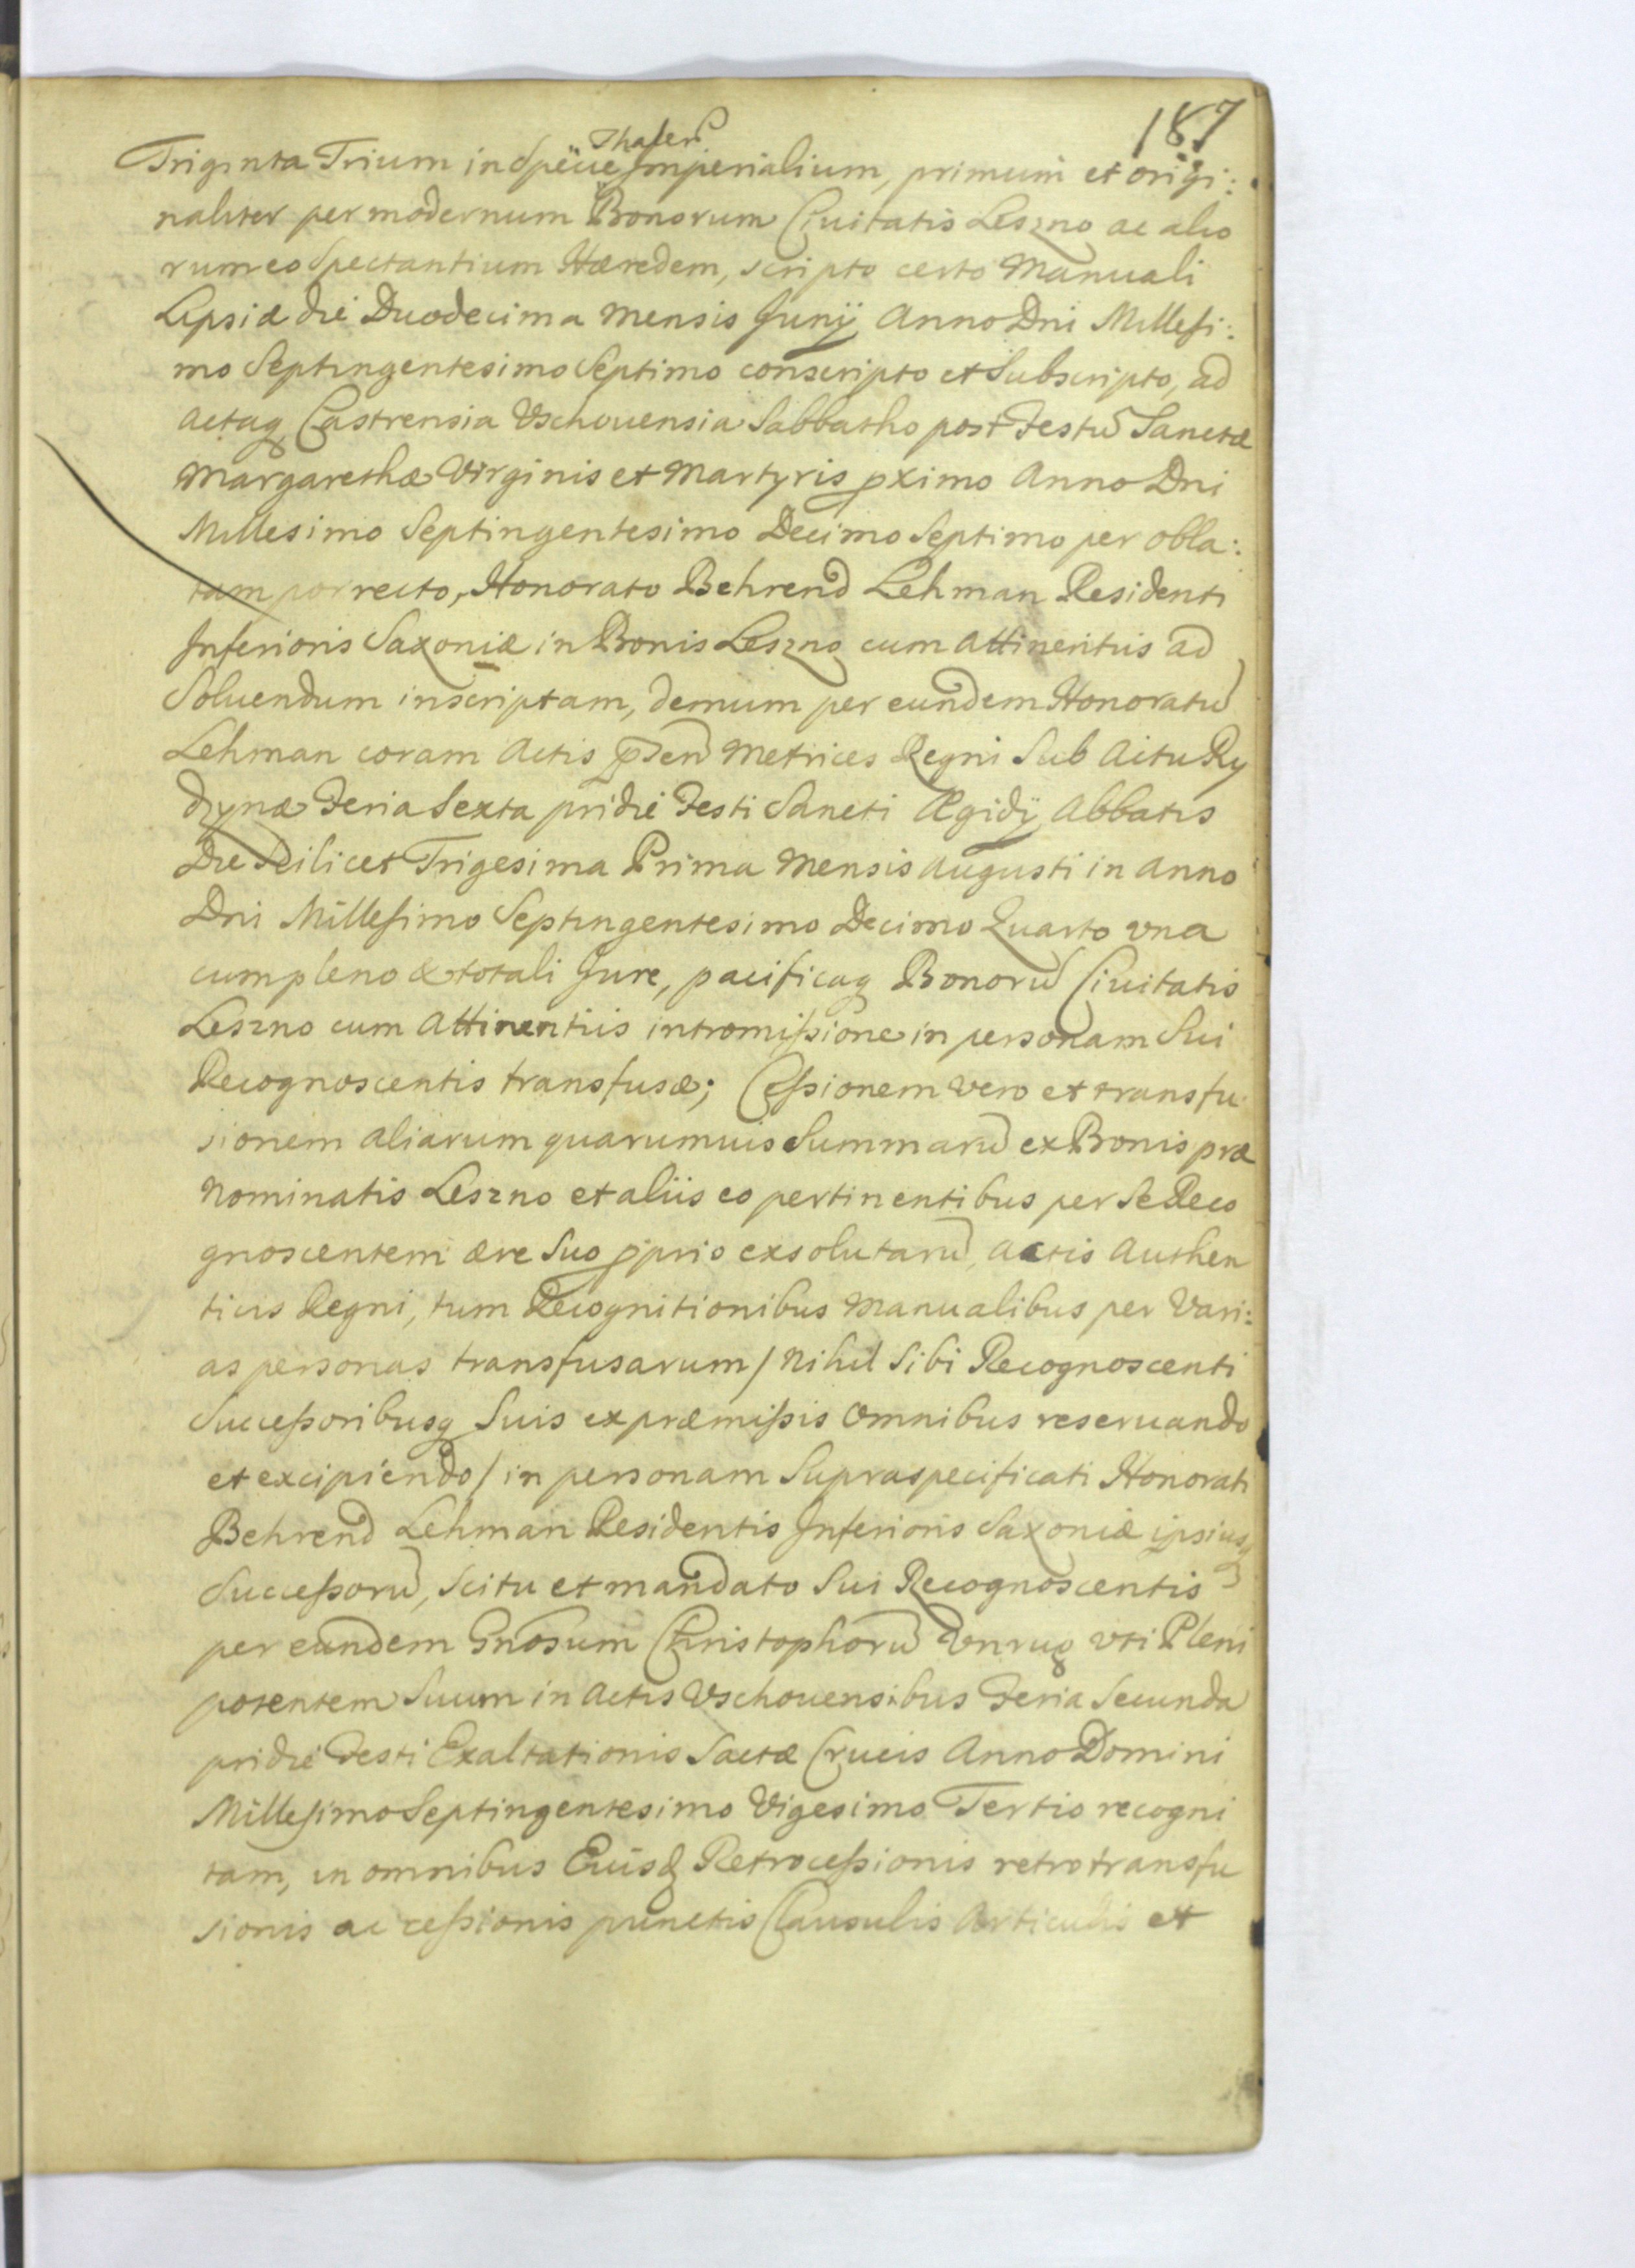 187
Thaler
Triginta Trium in Specie Imperialium, primum et origi:
naliter per modernum Bonorum Civitatis Leszno ac alio
rum eo Spectantium Hæredem, scripto certo Manuali
Lipsiæ die Duodecima Mensis Junÿ Anno Dni Millesi:
mo Septingentesimo Septimo conscripto et Subscripto, ad
Actaq Castrensia Vschouensia Sabbatho post Festu Sanctæ
Margarethæ Virginis et Martyris pximo Anno Dni
Millesimo Septingentesimo Decimo Septimo per obla:
tam porrecto, Honorato Behrend Lehman Residenti
Inferioris Saxoniæ in Bonis Leszno cum Attinentiis ad
Soluendum inscriptam, demum per eundem Honoratu
Lehman coram Actis Metrices Regni Sub Actu Ry
dzynæ Feria Sexta pridie Festi Sancti Ægidÿ Abbatis
Die Scilicet Trigesima Prima Mensis Augusti in Anno
Dni Millesimo Septingentesimo Decimo Quarto vna
cum pleno & totali Jure, pacificaq Bonoru Ciuitatis
Leszno cum Attinentiis intromissione in personam Sui
Recognoscentis transfusæ; Cessionem vero et transfu
sionem aliarum quarumuis Summaru ex Bonis præ
nominatis Leszno et aliis eo pertinentibus per Se Reco
gnoscentem ære Suo pprio exsolutaru, Actis Authen
ticis Regni, tum Recognitionibus Manualibus per Vari:
as personas transfusarum / Nihil Sibi Recognoscenti
Successoribusq Suis ex præmissis Omnibus reseruando
et excipiendo / in personam Supraspecificati Honorati
Behrend Lehman Residentis Inferioris Saxoniæ ipsiusq
Successoru, Scitu et mandato Sui Recognoscentis
per eundem Gnosum Christophoru Vnrug vti Pleni
potentem Suum in Actis Vschouensibus Feria Secunda
pridie Festi Exaltationis Sactæ Crucis Anno Domini
Millesimo Septingentesimo Vigesimo Tertio recogni
tam, in omnibus Eiusd Retrocessionis retrotransfu
sionis ac cessionis punctis Clausulis Articulis et